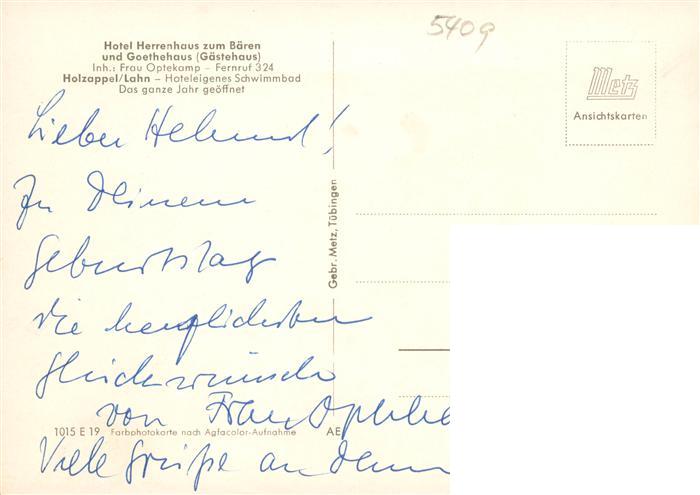 5409
Hotel Herrenhaus zum Bären
und Goethehaus (Gästehaus)
Inh.: Frau Optekamp – Fernruf 324
Holzappel/Lahn – Hoteleigenes Schwimmbad
Das ganze Jahr geöffnet
Metz
Ansichtskarten
Lieber Helmut!
Zu Deinem
Geburtstag
die herzlichsten
Glückwünsche
von Frau
Viele Grüße an
Gebr. Metz, Tübingen
1015 E 19 Farbphotokarte nach Agfacolor-Aufnahme
AE